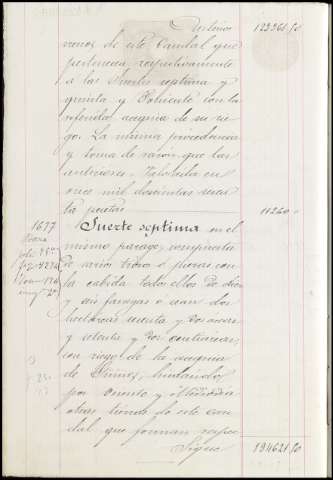 123361,50
renos de este Caudal que
pertenecen respectivamente
a las Suertes septima y
quinta y Poniente con la
referida acequia de su rie-
go. La misma procedencia
y toma de razón que las
anteriores. Valorada en
once mil doscientas sesen
ta pesetas 11260 "
1677
Suerte septima en el
mismo parage, compuesta
de varios trozos o piezas con
la cabida todo ellos de diez
y seis fanegas o sean dos
hectareas sesenta y dos areas
y setenta y dos centiareas,
con riego de la acequia
de lindando
por Oriente y Mediodia
otras tierras de este cau
dal que forman
Sigue 134621,50